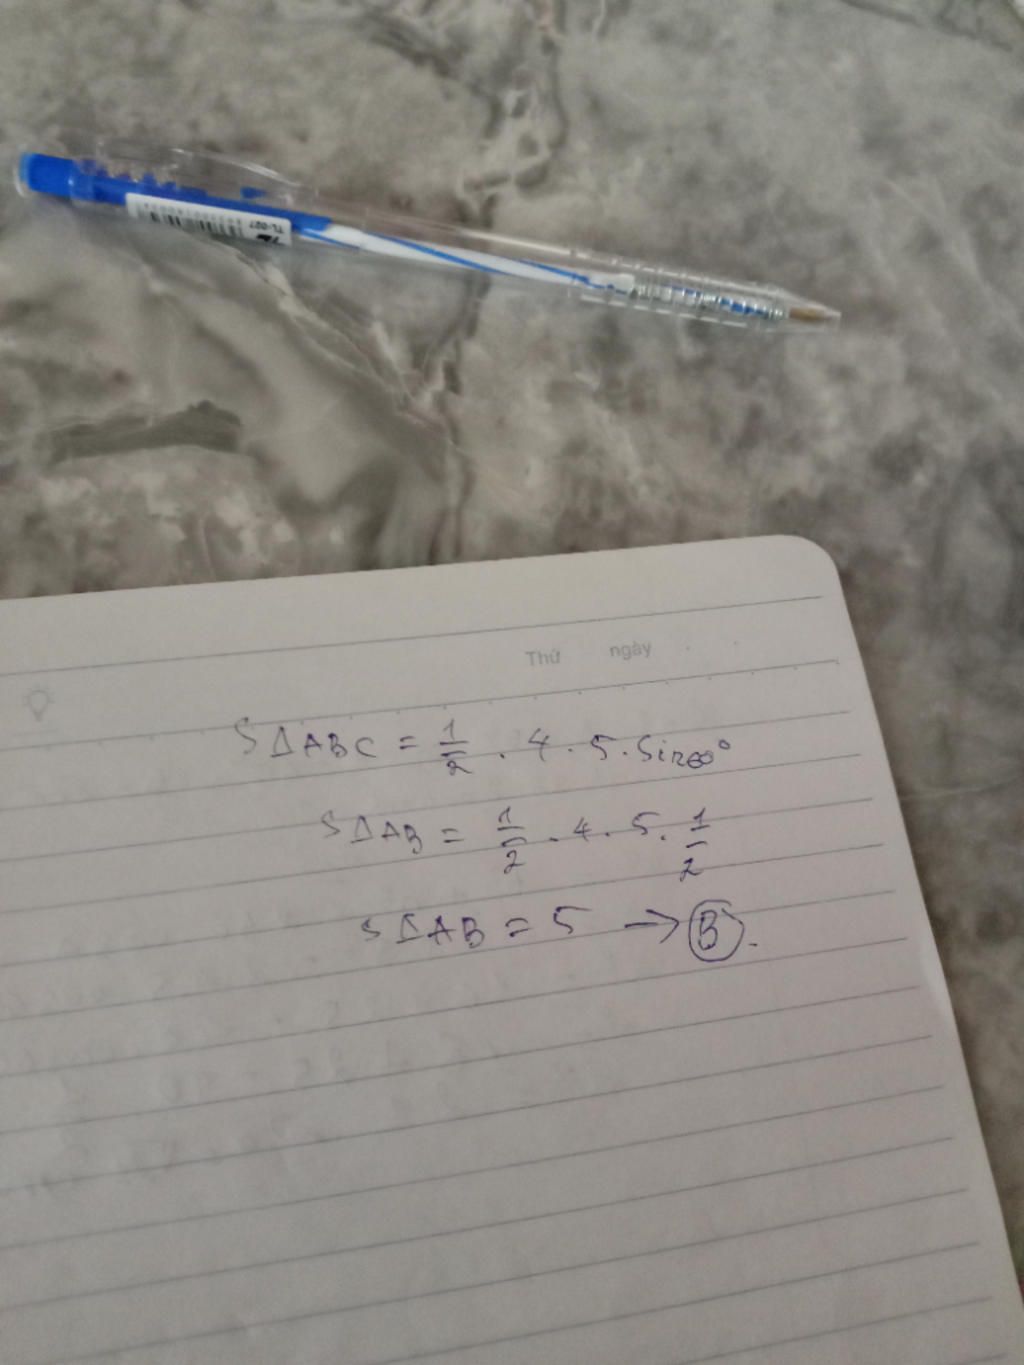 TL-027
Thứ ngày
SΔABC = 1/2 . 4 . 5 . Sin60°
SΔAB = 1/2 . 4 . 5 . 1/2
SΔAB = 5 → B.